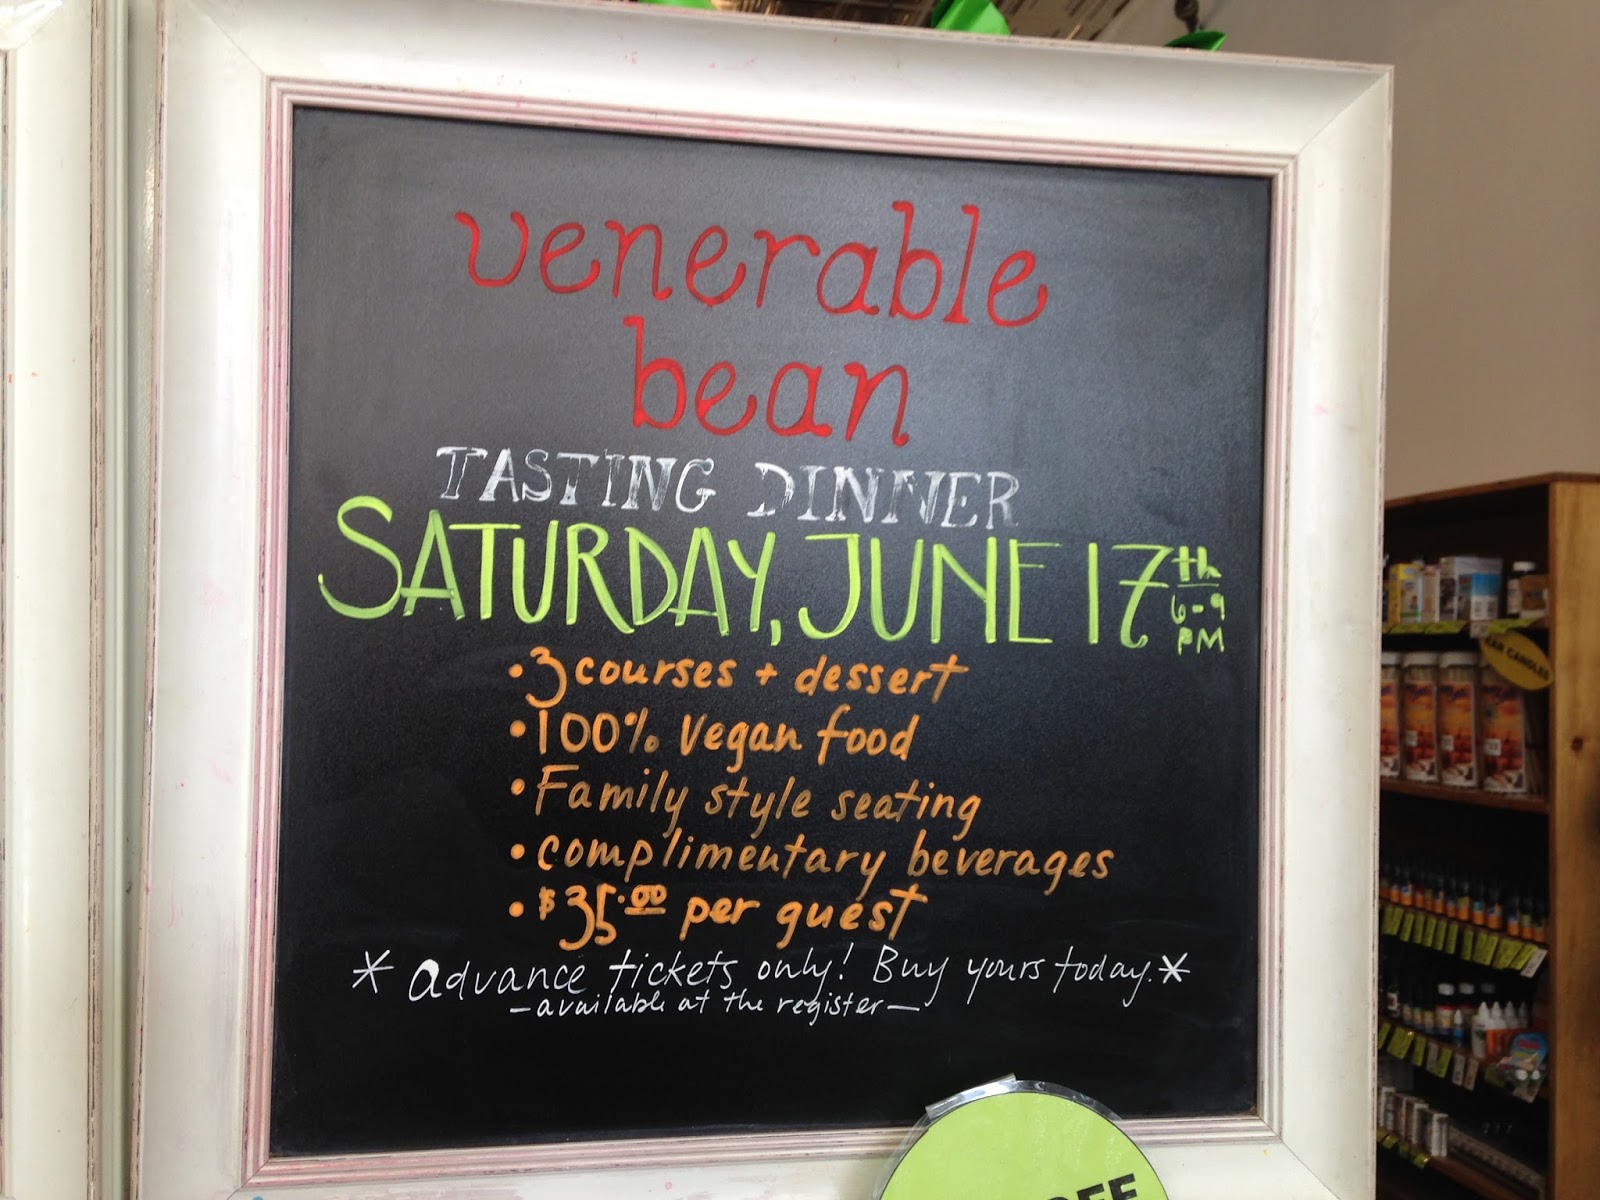 venerable
bean
TASTING DINNER
SATURDAY, JUNE 17th
6-9
PM
• 3 courses + dessert
• 100% Vegan food
• Family style seating
• complimentary beverages
• $35.00 per guest
* Advance tickets only! Buy yours today. *
- available at the register -
EAR CANDLES